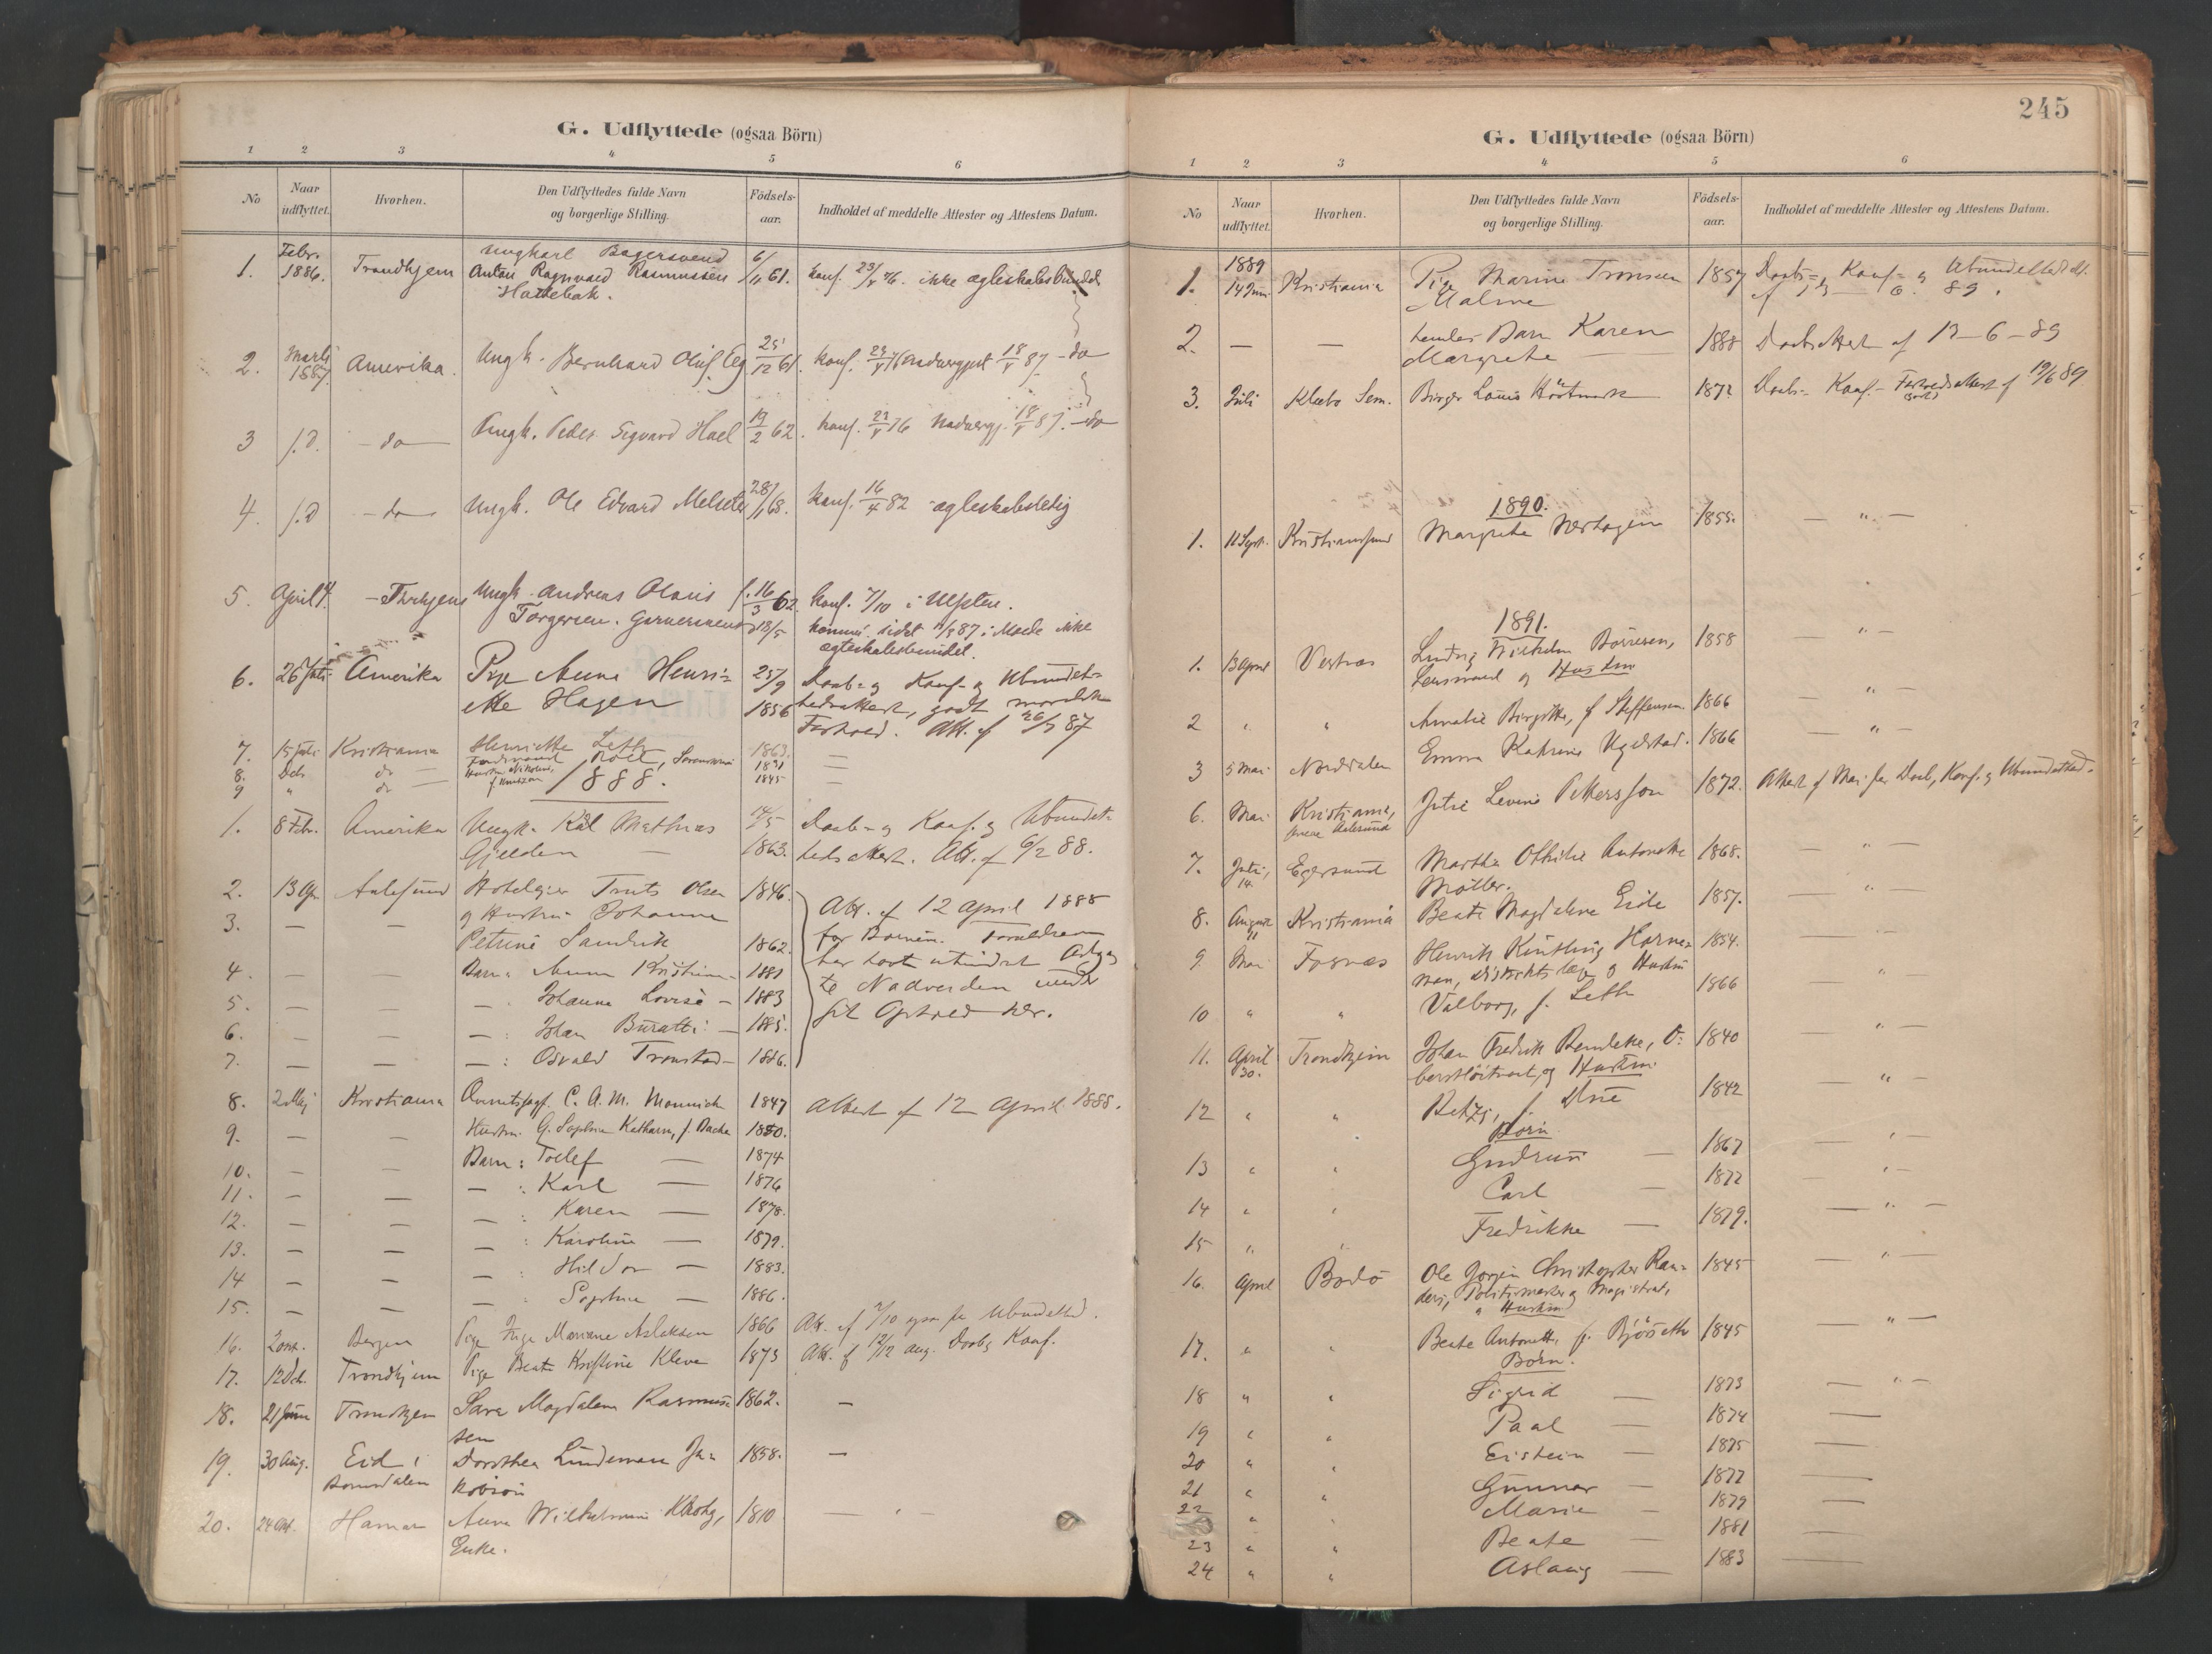 G. Udflyttede (ogsaa Börn)
1 2 3 4 5 6
No Naar udflyttet. Hvorhen. Den Udflyttedes fulde Navn og borgerlige Stilling. Födsels-aar. Indholdet af meddelte Attester og Attestens Datum.
1. Febr. 1886. Trondhjem Ungkarl Bagersvend 6/11 61. konf. 23/4 76. ikke ægteskabsbundet
Anton Ragnvald Rasmussen
Hattebak.
2. Marts 1887. Amerika. Ungk. Bernhard Oluf Eeg 25/12 61. konf. 18/4 87 - do
3 s.D. - do - Ungk. Peder Sigvard Hoel 19/2 62. konf. 87. - do
4. s.D - do - Ungk. Ole Edvard Melseter 28/1 68. konf. 16/4 82 - ægteskabsledig
5. April 4. - Thrhjem Ungk. Andreas Olaus f. 16/3 62. konf. 7/10 i Ulfsten.
Torgersen. Garversvend ikke
ægteskabsbundet.
6. 26 Juli Amerika Pige Anna Henri- 25/9 Daab- og Konf- og Ubundet-
ette Hagen 1856 hedsattest, godt moralsk
Forhold. Att. af 26/7 87
7. 15 Juli Kristiania Henriette Leth 1863. —
8. Dcb. do — 1841 —
9 " do — f. Knutzon 1845 —
1888.
1. 8 Febr. Amerika Ungk. Karl Mathias 14/5 Daab- og Konf. og Ubundet-
Gjelden — 1863. hedsattest. Att. af 6/2 88.
2. 13 Apr. Aalesund Hotelejer Truls Olsen 1846. Att. af 12 April 1888
3. — — og Hustru Johanna for Børnene. Forældrene
Petrine Landrik 1862. har havt uhindret Adgang
4. — — Barn: Anna Kristine — 1881 til Nadverden under
5. — — — . Johanna Lovise — 1883 sit Ophold her.
6. — — — : Johan Buratti — 1885.
7. — — — : Osvald Tronstad — 1886.
8. 2 Maj Kristiania C. A. M. Monnich 1847 Attest af 12 April 1888.
9. — — Hustru G. Sophie Kathar., f. Backe 1850.
10. — — Barn: Tollef — 1874
11. — — — : Karl — 1876
12. — — — : Karen — 1878.
13. — — — : Karoline — 1879.
14 — — — : Hildor — 1883.
15. — — — : Sophie — 1886.
16. Bergen Pige Inga Mariane Aslaksen 1866 Att. af 7/10 ogsaa for Ubundethed.
17. 12 Dcb. Trondhjem Pige Beate Kristine Kleve 1873 Att. af 12/12 ang. Daab og Konf.
18. 21 Juni Trondhjem Sara Magdalena Rasmus- 1862. —
sen
19. 30 Aug. Eid i Dorothea Lindeman Ja- 1858. —
Romsdalen kobsen
20. 24 Okt. Hamar Anna Wilhelmine Krohg, 1810 — " —
Enke.
245
G. Udflyttede (ogsaa Börn)
1 2 3 4 5 6
No Naar udflyttet. Hvorhen. Den Udflyttedes fulde Navn og borgerlige Stilling. Födsels-aar. Indholdet af meddelte Attester og Attestens Datum.
1. 1889 14 Juni Kristiania Pige Marine Tronsen 1857 Daabs- og Konf- og Ubundethedsatt.
Malme af 13 — 6. 89.
2. — — hendes Barn Karen 1888 Daabsattest af 13 - 6 - 89
Margrete —
3. Juli Klæbo Sem. Birger Louis Høstmark 1872 Daabs- Konf- Forholdsattest af 19/6 89
1890.
1. 11 Sept. Kristianssund Margrethe Nerhagen 1855. — " —
1891.
1. 13 April Vestnæs Ludvig Wilhelm Börresen, 1858 — " —
Lensmand og Hustru
2 " " Amalie Birgitte, f. Steffensen. 1866 — " —
3 5 Mai Norddalen Emma Katrine Ugelstad. 1866 — " —
6. Mai Kristiania, Jutie Levine Pettersson 1872. Attest af Mai for Daab, Konf. og Ubundethed.
Aalesund
7. Juli, 14. Egersund Martha Othilie Antonette 1868. — " —
Møller.
8. August 11 Kristiania Beate Magdalena Eide 1857. — " —
9. Mai Fosnæs Henrik Horne- 1854. — —
man, Distriktslæge og Hustru
10 " " Valborg, f. Leth 1866 — "
11. April 30. Trondhjem Johan Fredrik Bendeke, O- 1840 — " —
berstløitnant, og Hustru
12 " " Betzy, f. Due 1842 — " —
Børn
13 " " Gudrun — 1867 — " —
14 " " Carl — 1877 — " —
15 " " Fredrikke — 1879. — " —
16. April Bodö Ole Jørgen Christopher Ran- 1845 — " —
ders, Politimester og Magistrat,
" Hustru
17. " " Beate Antonette f. Bjørseth 1845 — " —
Børn.
18 " " Sigrid — 1873 — " —
19 " " Paal — 1874 —
20 " " Eistein — 1875 —
21 " " Gunnar — 1877 —
22 " " Marie — 1879 —
23 " " Beate — 1881 —
24 " " Aslaug — 1883 —